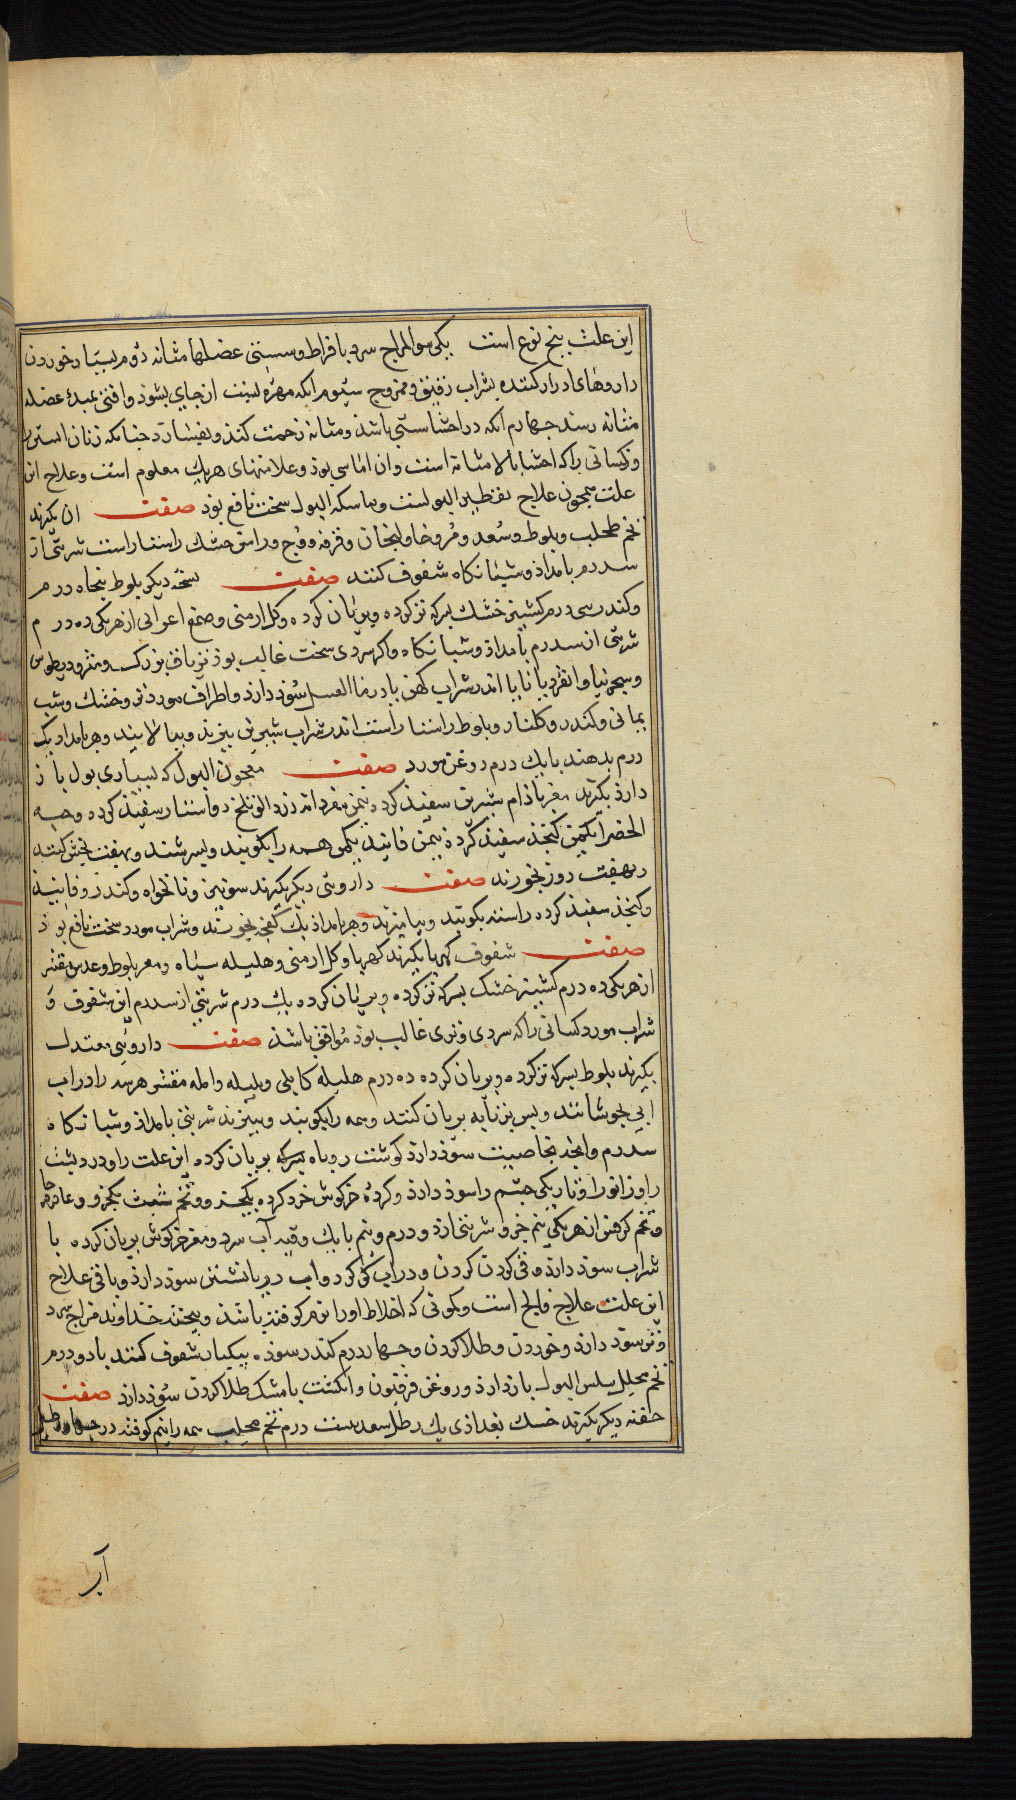 این علت پنج نوع است یکی سوالمزاج سرد بافراط و سستی عضلها مثانه دوم بسیار خوردن
داروهای ادرار کننده بشراب رقیق و ممزوج سیوم انکه مهره پشت از جای بشوذ و افتی بمبدء عضله
مثانه رسد جهارم انکه در احشا سستی باشد و مثانه زحمت کند و بفشارد جنانکه زنان ابستن را
و کسانی را که احشا بالا مثانه است و ان اماسی بوذ و علامتهای هریک معلوم است و علاج این
علت همجون علاج تقطیر البولست و ماسکه البول سخت نافع بوذ صفت ان بکیرند
تخم محلب و بلوط و سعد و مر و خاولنجان و قرفه و وج و راسن خشک راستا راست شربتی از
سدرم بامداذ و شبانکاه سفوف کنند صفت نسخه دیکر بلوط بنجاه درم
و کندر سی درم کشنیز خشک بسرکه تر کرده و بریان کرده و کل ارمنی و صمغ اعرابی از هر یکی ده درم
شربتی ازو سدرم بامداذ و شبانکاه و اکر سردی سخت غالب بوذ تریاق بزرک و مثرودیطوس
و سجرنیا و انقردیا تا یا اندر شراب کهن یا در ما العسل سوذ دارذ و اطراف مورد تر و خشک و شب
یمانی و کندر و کلنار و بلوط راستا راست اندر شراب شیرین بپزند و ببالایند و هر بامداد یک
درم بدهند با یک درم روغن مورد صفت معجون البول که بسیاری بول باز
دارذ بکیرند مغز باذام شیرین سفید کرده نیمن
الخضرا یکمن کنجذ سفیذ کرده نیمن فانیذ یکمن همه را بکوبند و بسرشند و بهفت بخش کنند
و بهفت روز بخورند صفت داروئی دیکر بکیرند سونیز و نانخواه و کندر و فانیذ
و کنجذ سفید کرده راستا بکوبند و بیامیزند و هر بامداذ یک کفجه بخورند و شراب مورد سخت نافع بوذ
صفت سفوف کهربا بکیرند کهربا و کل ارمنی و هلیله سیاه و مغز بلوط و عدس مقشر
از هر یکی ده درم کشنیز خشک بسرکه تر کرده و بریان کرده یک درم شربتی از سدرم این سفوف و
شراب مورد کسانی را که سردی و تری غالب بوذ موافق باشد صفت داروئی معتدل
بکیرند بلوط بسرکه تر کرده و بریان کرده ده درم هلیله کابلی و بلیله و امله مقشر هر سه را در اب
ابی بجوشانند و بس بریان کنند و همه را بکوبند و ببیزند شربتی بامداذ و شبانکاه
سدرم و انجذ بخاصیت سوذ دارذ کوشت روباه بسرکه بریان کرده این علت را و درد بشت
را و زانو را و تاریکی جشم را سوذ دارذ و کرده خرکوش خرد کرده و تخم شبت یکجزو و عاقرقرحا
و تخم کرفس از هر یکی نیم جزو شربتی ازو دو درم و نیم با یک وقیه آب سرد و مغز خرکوش بریان کرده با
شراب سوذ دارذ و قی کردن کردن و در اب کوکرد و اب دریا نشستن سوذ دارذ و باقی علاج
این علت علاج فالج است و کمونی که اخلاط او را نرم کوفته باشد و بیخته خداوند مزاج سرد
و تر سوذ دارذ و خوردن و طلا کردن و جهار درم کندر سوذه بیکبار سفوف کنند با دو درم
تخم محلب سلس البول باز دارذ و روغن فرفیون و انکشت با مشک طلا کردن سوذ دارذ صفت
حقنه دیکر بکیرند خسک بغداذی یک رطل سعد بیست درم تخم محلب همه را نیم کوفته در جهار رطل
آب